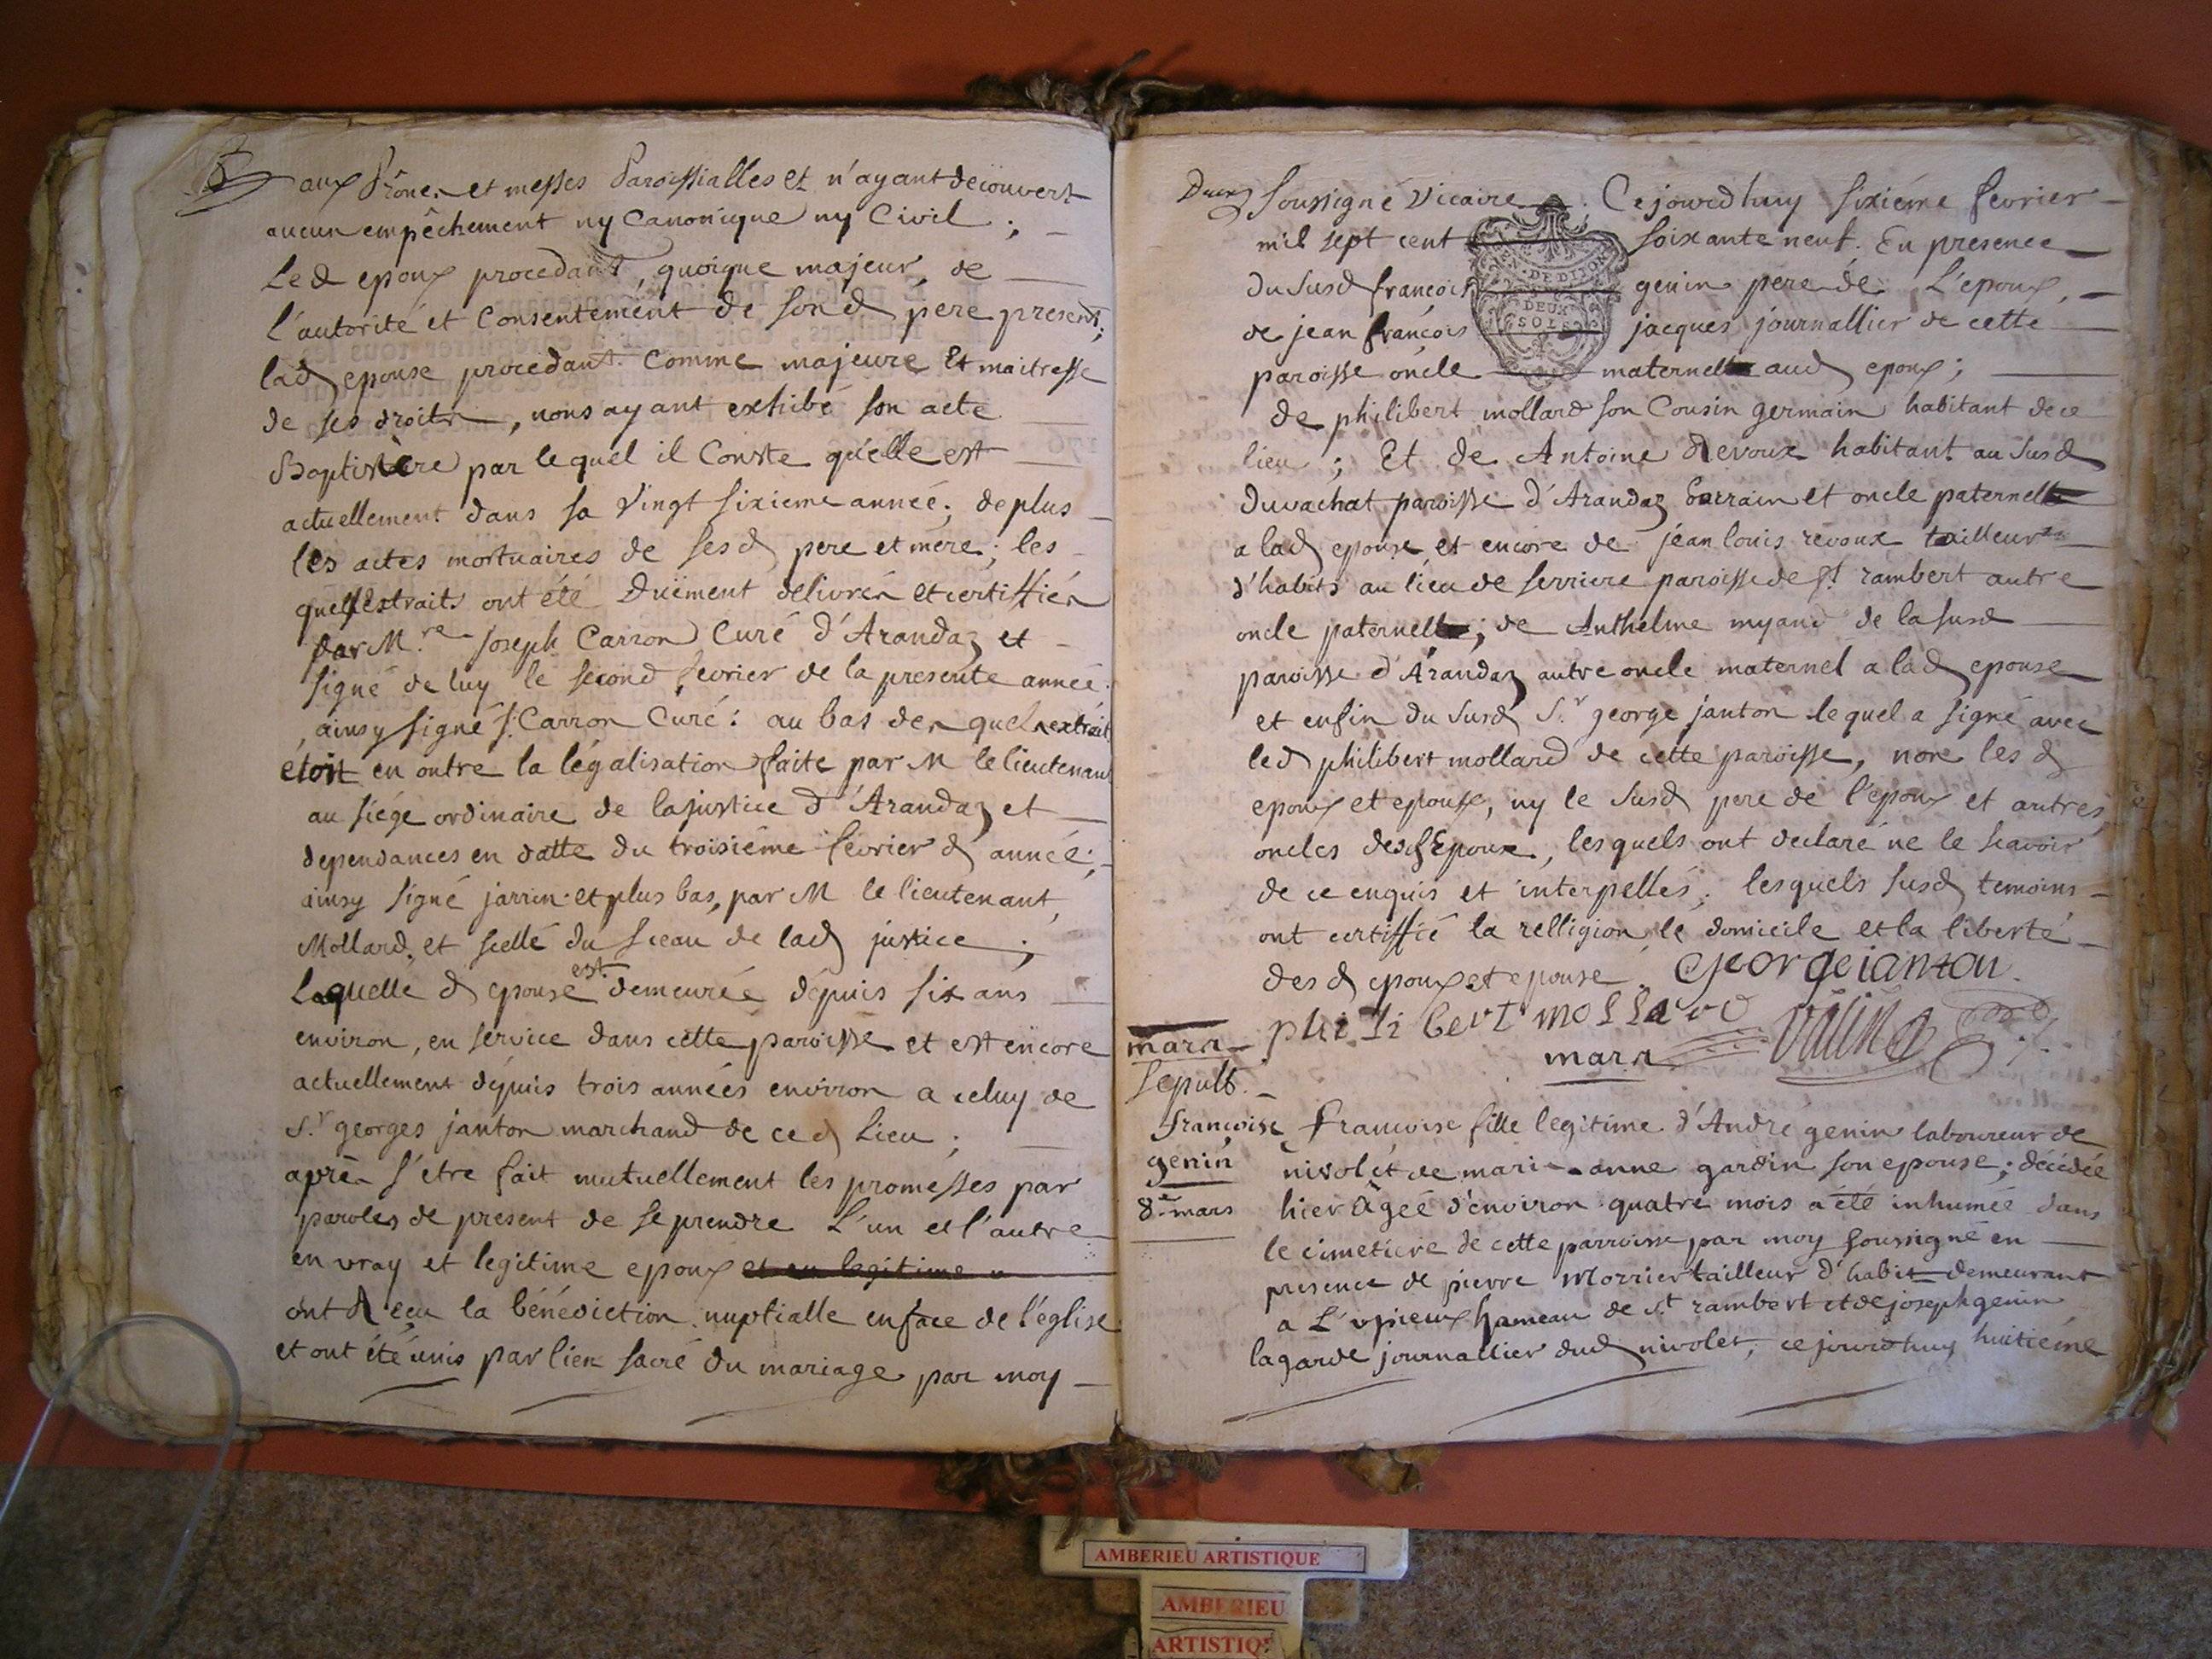 aux Prônes et messes Paroissialles et n'ayant decouvert
aucun empêchement ny Canonique ny Civil ;
Led epoux procedant, quoique majeur, de
l'autorité et Consentement de sond pere present ;
lad epouse procedant Comme majeure Et maitresse
de ses droits, nous ayant exhibé son acte
Baptistère par lequel il Conste qu'elle est
actuellement dans sa Vingt sixieme année ; de plus
les actes mortuaires de sesd pere et mere ; les
quels Extraits ont été Duëment delivrés et certiffiés
par M.re Joseph Carron Curé d'Arandaz et
signé de luy le second fevrier de la presente année.
ainsy signé J. Carron Curé : au bas desquels extrait
étoit en outre la légalisation faite par M le lieutenant
au siége ordinaire de la justice d'Arandaz et
dependances en datte du troisiéme fevrier d année ;
ainsy signé jarrin et plus bas, par M le lieutenant,
Mollard, et scellé du sceau de lad justice ;
Laquelle d epouse est demeurée depuis six ans
environ, en service dans cette paroisse et est encore
actuellement depuis trois années environ a celuy de
S.r georges janton marchand de ced Lieu ;
après s'etre fait mutuellement les promesses par
paroles de present de se prendre L'un et l'autre
en vray et legitime epoux et en legitime
ont Reçu la bénédiction nuptialle en face de l'église
et ont été unis par lien sacré du mariage par moy
Deux
Soussigné Vicaire. Cejourdhuy sixiéme fevrier
mil sept cent soixante neuf. En presence
du susd francois genin pere de L'epoux,
de jean françois jacques journallier de cette
paroisse oncle maternel aud epoux ;
GEN. DE DIJON
DEUX
SOLS
de philibert mollard son Cousin germain habitant de ce
lieu ; Et de Antoine Revoux habitant au susd
duvachat paroisse d'Arandaz parrain et oncle paternel
a lad epouse et encore de jean louis revoux tailleur
d'habits au lieu de serriere paroisse de St rambert autre
oncle paternel ; de Anthelme myand de la susd
paroisse d'Arandaz autre oncle maternel a lad epouse
et enfin du susd S.r george janton lequel a signé avec
led philibert mollard de cette paroisse, non les d
epoux et epouse, ny le susd pere de l'epoux et autres
oncles desd Epoux, lesquels ont declaré ne le scavoir
de ce enquis et interpellés ; lesquels susd temoins
ont certiffié la relligion, le domicile et la liberté
des d epoux et epouse. George ianton
phi li bert mollard
mars
mars
Sepult.
françoise
genin
8.e mars
francoise fille legitime d'André genin laboureur de
nivolet de mari-anne gardin son epouse ; décédée
hier âgée d'environ quatre mois a été inhumée dans
le cimetiere de cette parroisse par moy soussigné en
presence de pierre Morrier tailleur d'habit demeurant
a L'upieux hameau de St rambert et de joseph genin
lagarde journallier dud nivolet, ce jourdhuy huitiéme
AMBERIEU ARTISTIQUE
AMBERIEU
ARTISTIQ